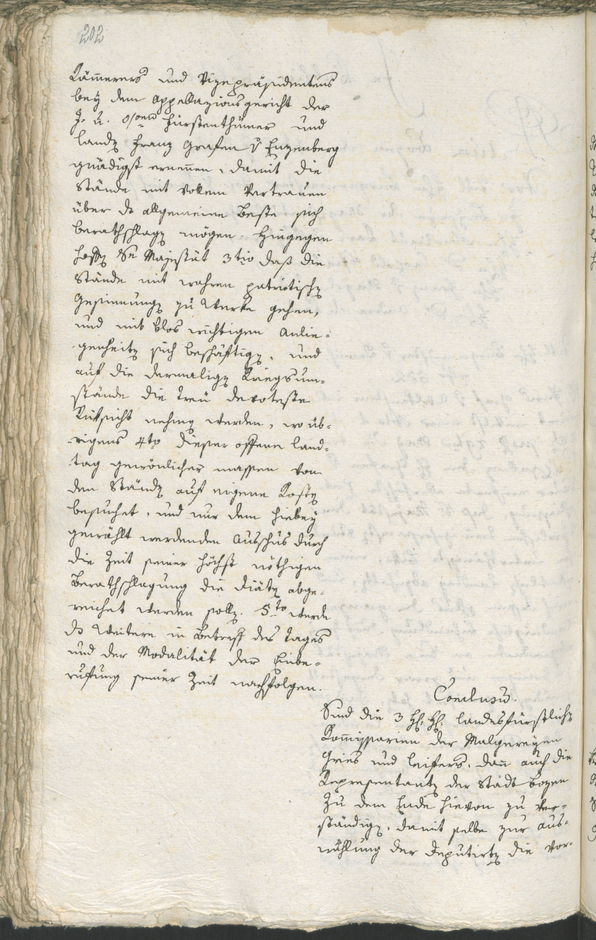 202
Kämerers und Vizepräsidentens
bey dem Appellazionsgericht der
J. Ö. O/oeu Fürstenthümer und
Landȩ Franz Grafen v Enzenberg
gnädigst ernennen, damit die
Stände mit vollem Vertrauen
über ds allgemeine Beste sich
berathschlagȩ mögen. Hingegen
hoffȩ Se Majestät 3tio daß die
Stände mit wahren patriotischȩ
Gesinnungȩ zu Werke gehen,
und mit blos wichtigen Anlie-
genheitȩ sich beschäftigȩ, und
auf die dermaligȩ Kriegsum-
stände die treu devoteste
Rüksicht nehmȩ werden, wo üb-
rigens 4to dieser offene Land-
tag gewönlicher massen von
den Ständȩ auf eigene Kostȩ
besuchet, und nur dem hiebey
gewählt werdenden Ausschus durch
die Zeit seiner höchst nöthigen
Berathschlagung die Diätȩ abge-
reichet werden sollȩ. 5to werde
ds Weitere in Betreff des Tages
und der Modalität der Einbe-
rufung seiner Zeit nachfolgen.
Conclusum.
Sind die 3 HH. HH. landesfürstliche
Kommissarien der Malgereyen
Gries und Leifers, dan auch die
Representantȩ der Stadt Bozen
zu dem Ende hievon zu ver-
ständigȩ, damit selbe zur Aus-
wählung der Deputirtȩ die Vor-